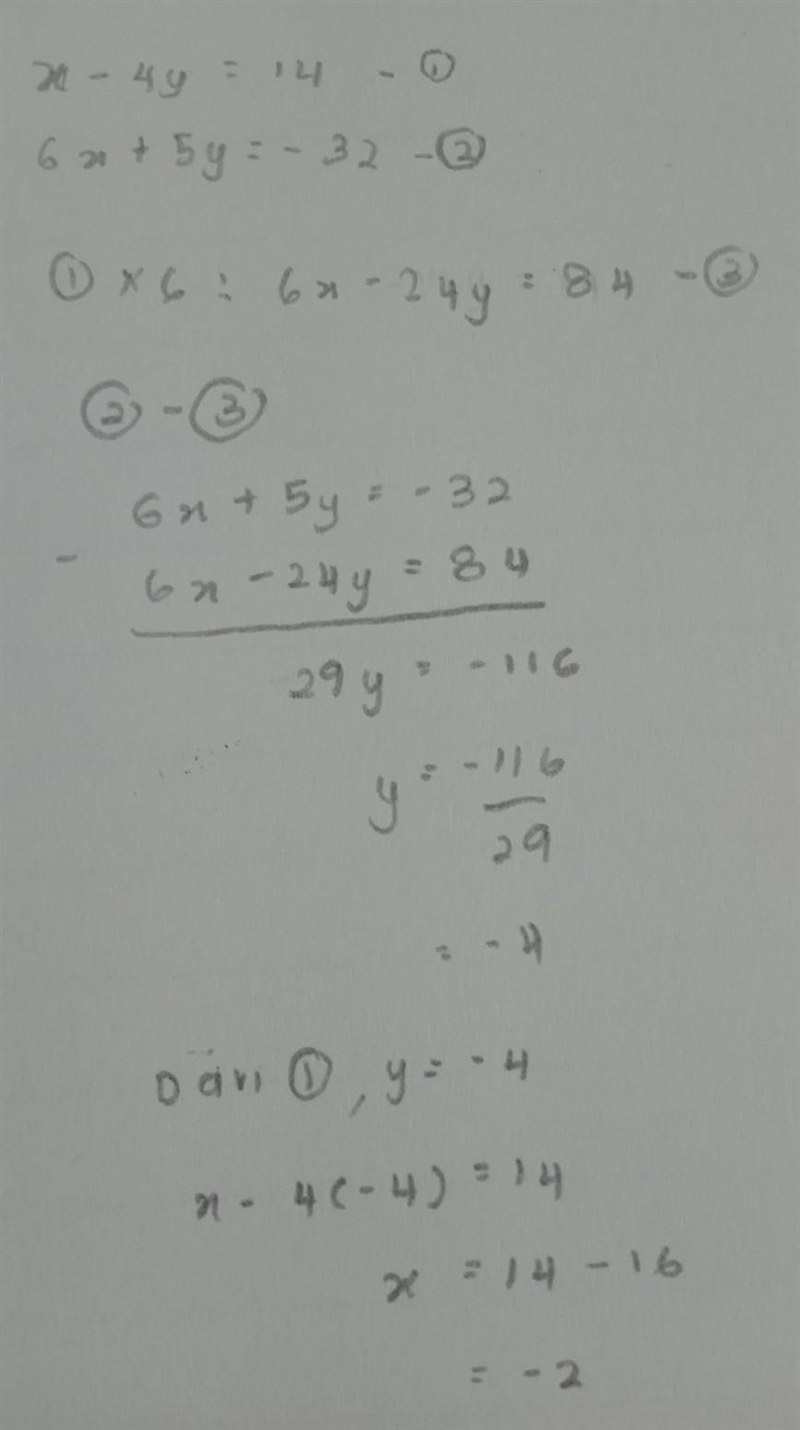 x - 4y = 14 - ①
6x + 5y = - 32 - ②
① × 6 : 6x - 24y = 84 - ③
② - ③
6x + 5y = - 32
-
6x - 24y = 84
29y = - 116
y = - 116
29
= - 4
Dari ①, y = - 4
x - 4(-4) = 14
x = 14 - 16
= - 2